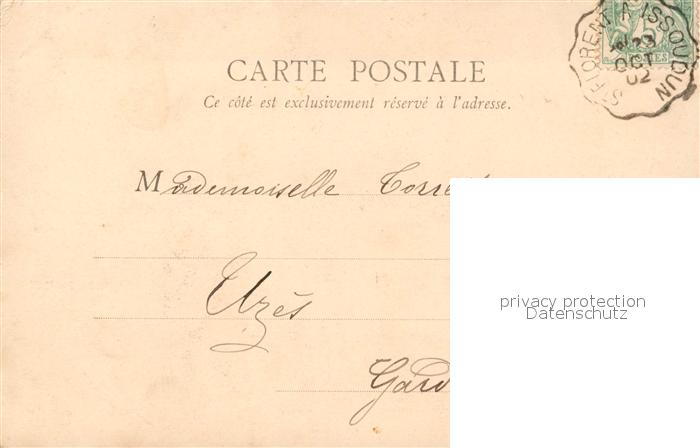 ST FLORENT A ISSOUDUN
23
OCT
02
CARTE POSTALE
Ce côté est exclusivement réservé à l'adresse.
Mademoiselle
Uzès
Gard
privacy protection
Datenschutz